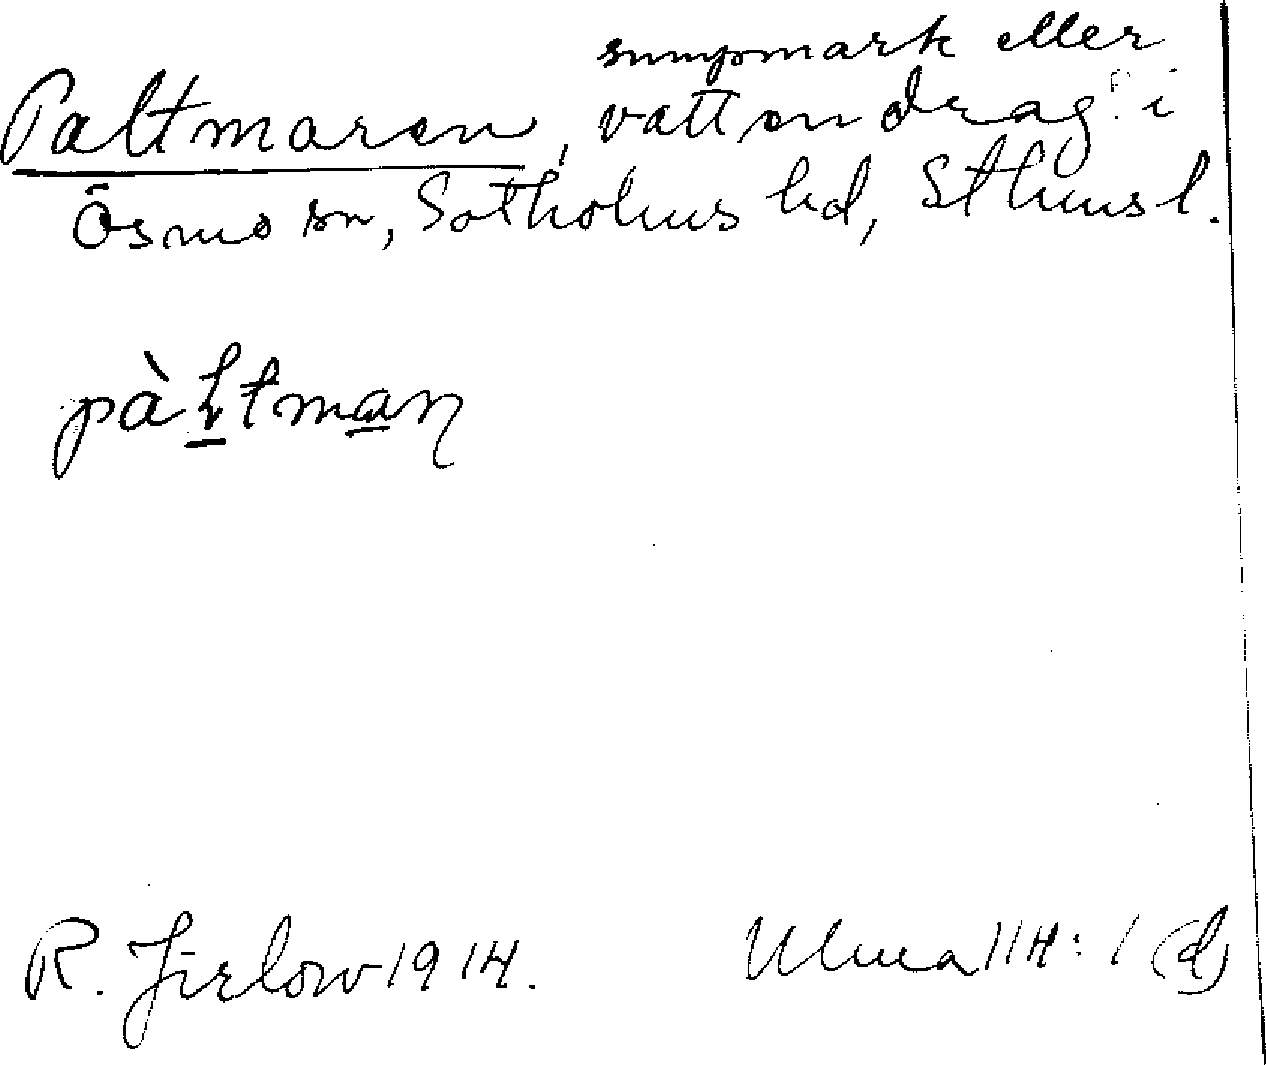 sumpmark eller
Paltmaren, vattendrag i
Ösmo sn, Sotholms hd, Sthms l.
pàltman
R. Jirlow 1914.
Ulma 114:1 (d)